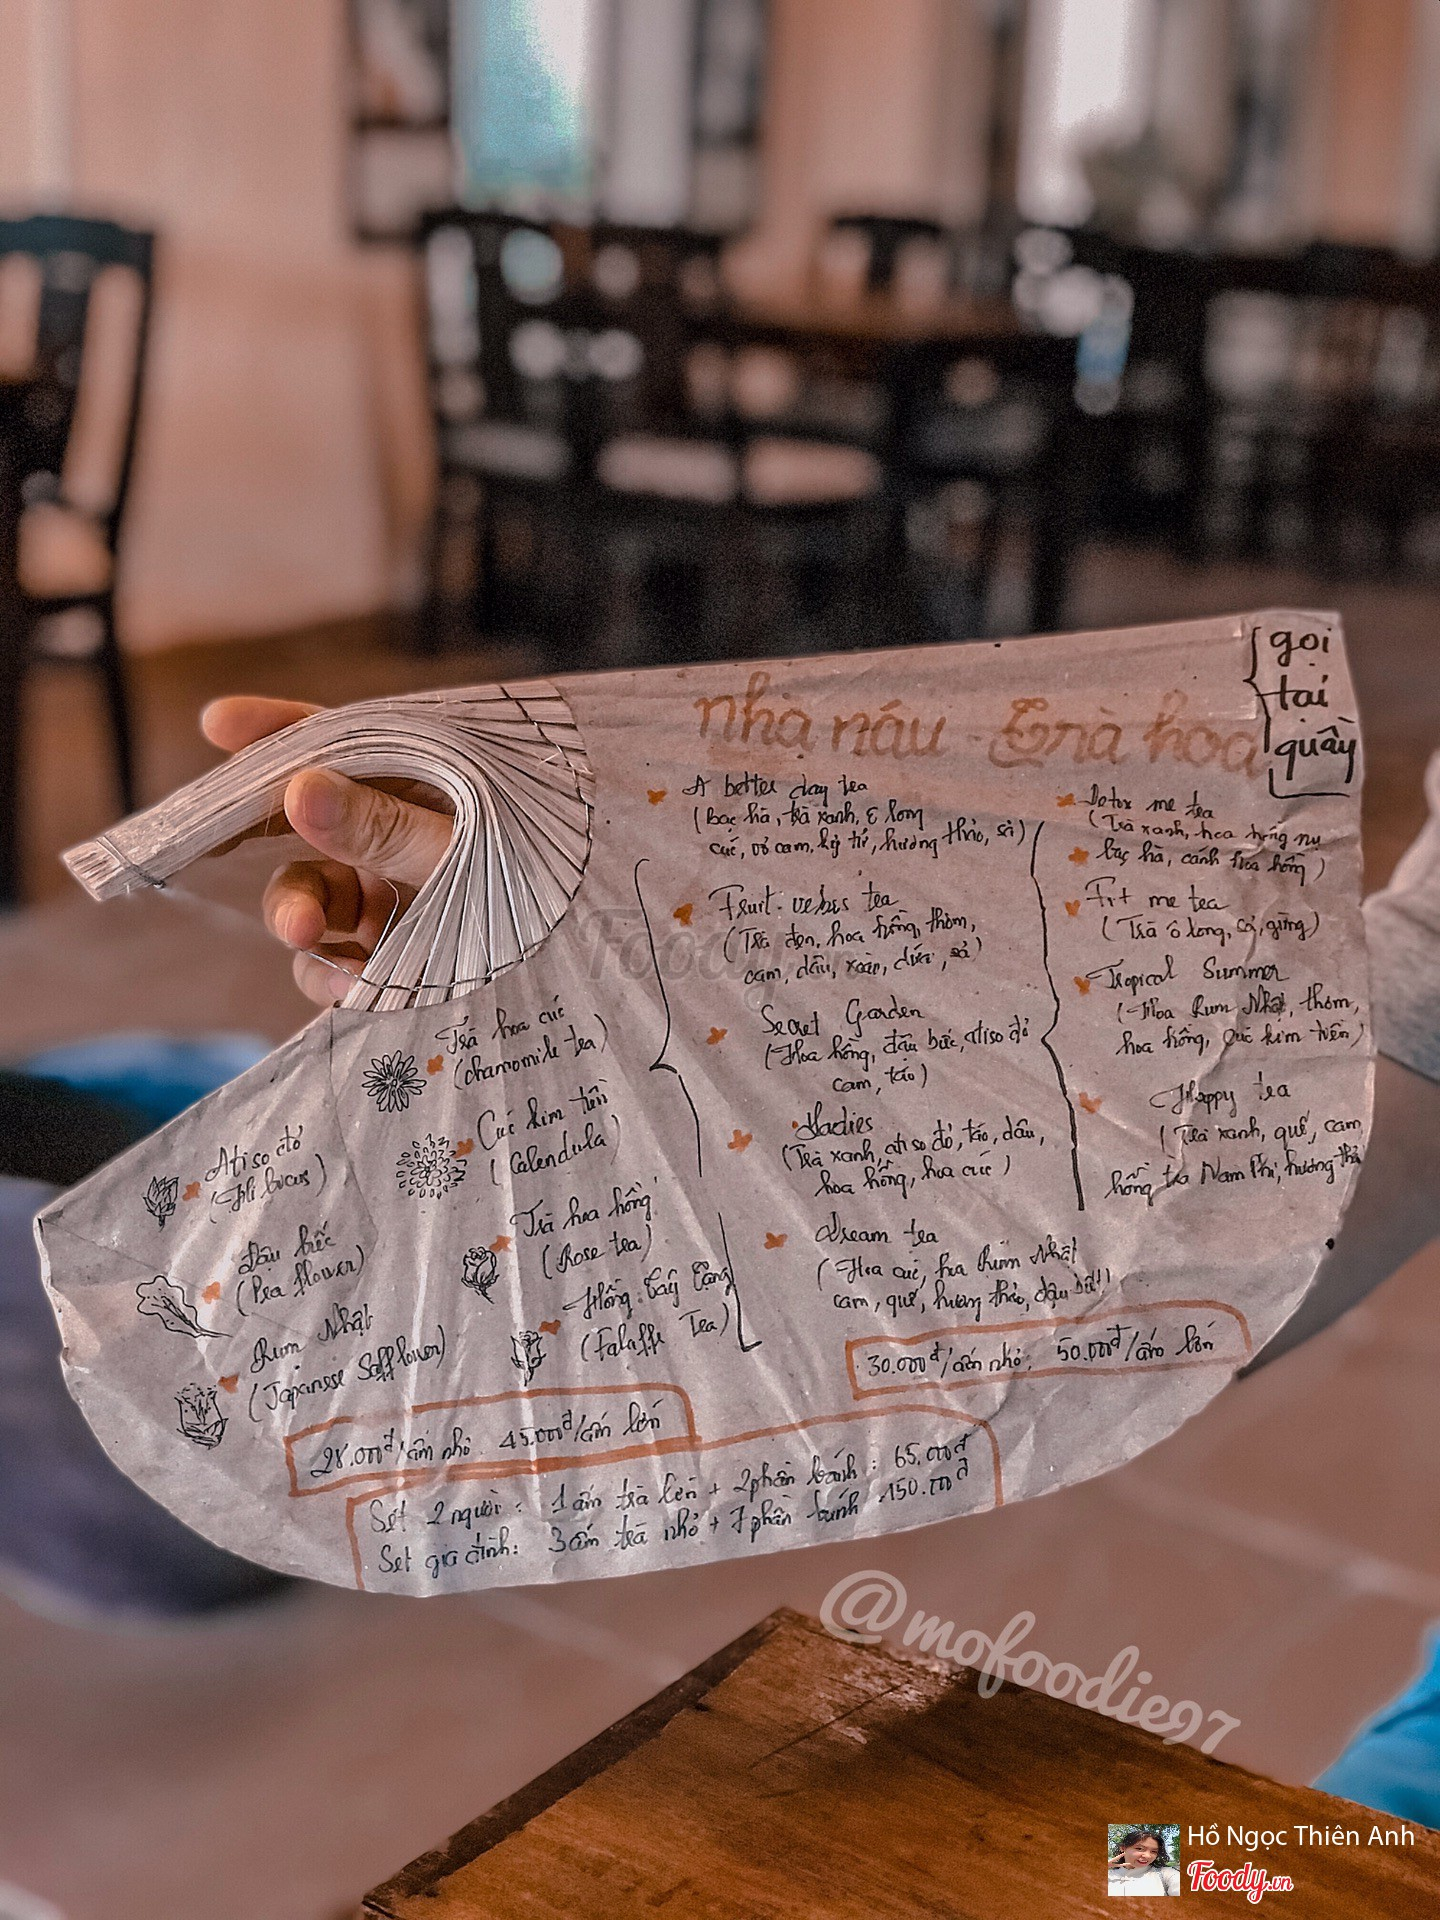 nhà náu - Trà hoa
gọi
tại
quầy
A better day tea
(Bạc hà, trà xanh, ô long
cúc, vỏ cam, kỷ tử, hương thảo, sả)
Fruit-
tea
(Trà đen, hoa hồng, thơm,
cam, dâu, xoài, dứa, sả)
Secret Garden
(Hoa hồng, đậu biếc, atiso đỏ
cam, táo)
Hadies
(Trà xanh, atiso đỏ, táo, dâu,
hoa hồng, hoa cúc)
Dream tea
(Hoa cúc, hoa Rum Nhật
cam, quế, hương thảo, đậu
30.000đ/ấm nhỏ, 50.000đ/ấm lớn
Detox me tea
(Trà xanh, hoa hồng nụ
bạc hà, cánh hoa hồng)
Fit me tea
(Trà ô long, sả, gừng)
Tropical Summer
(Hoa Rum Nhật, thơm,
hoa hồng, cúc kim tiền)
Happy tea
(Trà xanh, quế, cam,
hồng trà Nam Phi, hương thảo
Trà hoa cúc
(chamomile tea)
Cúc kim tiền
(Calendula)
Trà hoa hồng
(Rose tea)
Hồng Tây Tạng
(Falaffe Tea)
Atiso đỏ
(Hibicus)
Đậu biếc
(Pea flower)
Rum Nhật
(Japanese Safflower)
28.000đ/ấm nhỏ 45.000đ/ấm lớn
Set 2 người: 1 ấm trà lớn + 2 phần bánh: 65.000đ
Set gia đình: 3 ấm trà nhỏ + 7 phần bánh 150.000đ
Foody
@mofoodie97
Hồ Ngọc Thiên Anh
Foody.vn